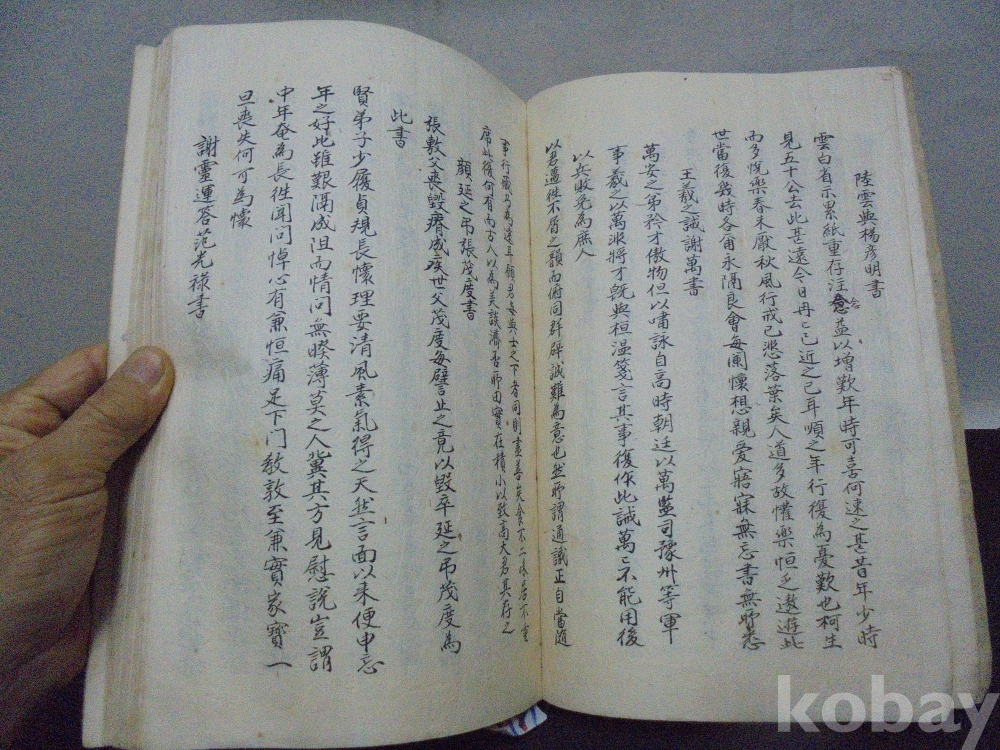 陸雲與楊彦明書
雲白省示累紙重存注念益以增歎年時可喜何速之甚昔年少時
見五十公去此甚遠今日冉〻已近之已耳順之年行復為憂歎也柯生
而多悅樂春未厭秋風行戒已悲落葉矣人道多故懽樂恒乏遨遊此
世當復幾時各爾永隔良會每闌懷想親爱寤寐無忘書無所悉
王羲之誡謝萬書
萬安之弟矜才傲物但以嘯詠自高時朝廷以萬監司豫州等軍
事羲之以萬非將才旣與桓温箋言其事復作此誡萬〻不能用後
以兵敗免為庶人
以君邁徃不屑之韻而俯同群辟誠難為意也然所謂通識正自當随
事行藏乃為遠耳願君每與士之下者同則盡善矣食不二味居不重
席此復何有而古人以為美談濟否所由實在積小以致高大君其存之
顔延之吊張茂度書
張敷父喪毁瘠成疾世父茂度每譬止之竟以毁卒延之吊茂度為
此書
賢弟子少履貞規長懷理要清風素氣得之天然言面以来便申忘
年之好比雖艱隔成沮而情問無暌薄莫之人冀其方見慰說豈謂
中年奄為長徃聞問悼心有兼恒痛足下門敎敦至兼實家寶一
旦喪失何可為懷
謝靈運答范光祿書
kobay